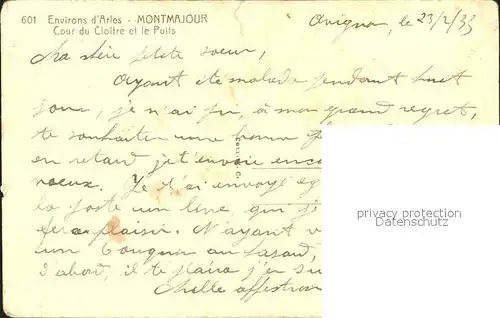 601 Environs d'Arles - MONTMAJOUR
Cour du Cloître et le Puits
Avignon, le 23/2/33
Ma chère petite soeur,
Ayant été malade pendant huit
jours, je n'ai pu, à mon grand regret,
te souhaiter une bonne
en retard je t'envoie
voeux. Je t'ai envoyé
la poste un livre qui
fera plaisir. N'ayant
un bouquin au hasard,
d'abord, il te plaira j'en
Mille
privacy protection
VARUHM.de